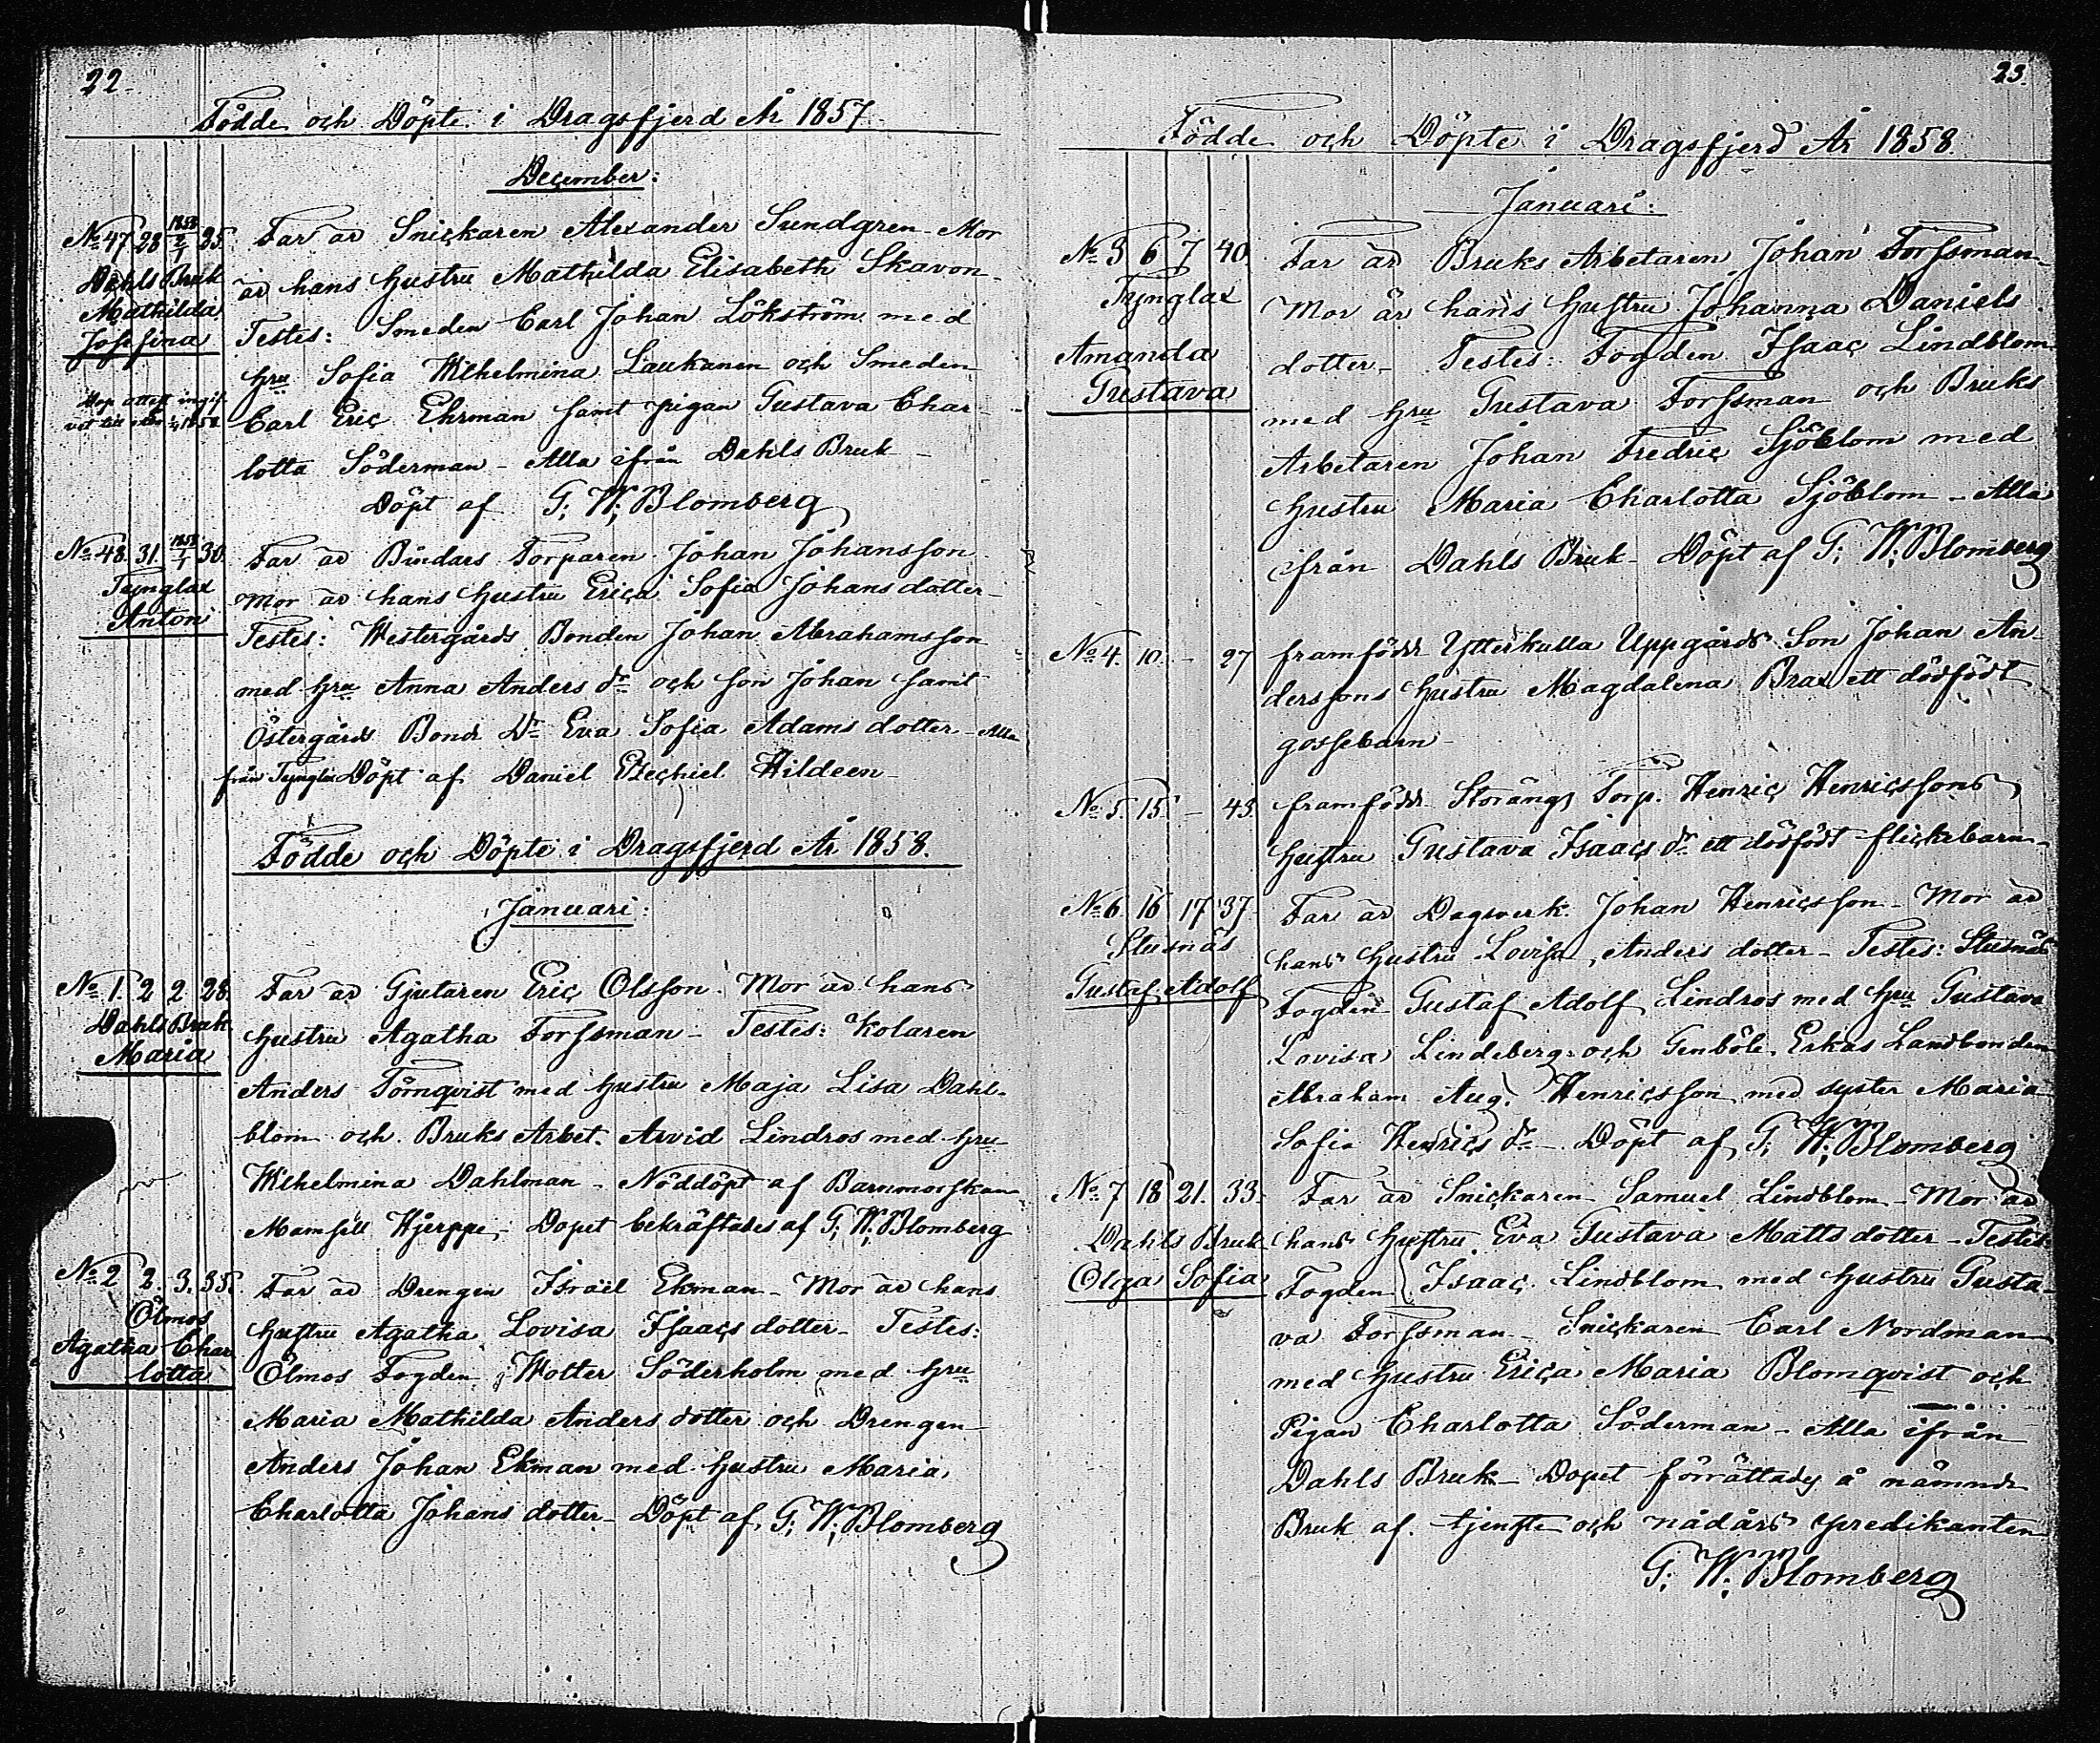 22.
Födde och Döpte i Dragsfjerd År 1857
December:
No 47 28 1858 2/1 25.
Dahls Bruk
Mathilda
Josefina
Far är Snickaren Alexander Sundgren - Mor
är hans hustru Mathilda Elisabeth Skavon -
Testes: Smeden Carl Johan Lökström med
hru Sofia Wilhelmina Laukanen och Smeden
Carl Eric Ehrman samt pigan Gustava Char-
lotta Söderman - Alla ifrån Dahls Bruk -
Döpt af G. W. Blomberg
No 48. 31. 1858 1/1 30.
Tynglax
Anton
Far är Bindars Torparen Johan Johansson
Mor är hans hustru Erica Sofia Johansdotter -
Testes: Westergårds Bonden Johan Abrahamsson
med hru Anna Anders dr och son Johan samt
Östergårds Bond Dr Eva Sofia Adams dotter - Alla
från Tynglax Döpt af Daniel Ezechiel Hildeen -
Födde och Döpte i Dragsfjerd År 1858.
Januari:
No 1. 2 2. 28.
Dahls Bruk
Maria
Far är Gjutaren Eric Olsson. Mor är hans
hustru Agatha Forssman - Testes: Kolaren
Anders Törnqvist med hustru Maja Lisa Dahl-
blom och Bruks Arbet. Arvid Lindros med hru
Wilhelmina Dahlman - Nöddöpt af Barnmorskan
Mamsell Hjerppe - Dopet bekräftades af G. W. Blomberg
No 2 2. 3. 35.
Ölmos
Agatha Char
lotta
Far är Drengen Israël Ekman - Mor är hans
hustru Agatha Lovisa Isaacs dotter - Testes:
Ölmos Fogden Wolter Söderholm med hru
Maria Mathilda Anders dotter och Drengen
Anders Johan Ekman med hustru Maria
Charlotta Johans dotter - Döpt af G. W. Blomberg
23.
Födde och Döpte i Dragsfjerd År 1858.
Januari:
No 3 6 7 40
Tynglax
Amanda
Gustava
Far är Bruks Arbetaren Johan Forssman -
Mor är hans hustru Johanna Daniels
dotter - Testes: Fogden Isaac Lindblom
med hru Gustava Forssman och Bruks
Arbetaren Johan Fredric Sjöblom med
hustru Maria Charlotta Sjöblom - Alla
ifrån Dahls Bruk - Döpt af G. W. Blomberg
No 4. 10. - 27
framfödde Ytterkulla Uppgårds Son Johan An
derssons hustru Magdalena Brax ett dödfödt
gossebarn -
No 5. 15. - 43.
framfödde Storängs Torp. Henric Henricssons
hustru Gustava Isaacs dr ett dödfödt flickebarn -
No 6. 16 17 37
Stusnäs
Gustaf Adolf
Far är Dagsverk. Johan Henricsson - Mor är
hans hustru Lovisa Anders dotter - Testes: Stusnäs
Fogden Gustaf Adolf Lindros med hru Gustava
Lovisa Lindeberg och Genböle Erkas Landbonden
Abraham Aug. Henricsson med syster Maria
Sofia Henrics dr - Döpt af G. W. Blomberg
No 7 18 21. 33.
Dahls Bruk
Olga Sofia
Far är Snickaren Samuel Lindblom - Mor är
hans hustru Eva Gustava Matts dotter - Testes
Fogden Isaac Lindblom med hustru Gusta-
va Forssman - Snickaren Carl Nordman
med hustru Erica Maria Blomqvist och
Pigan Charlotta Söderman - Alla ifrån
Dahls Bruk - Dopet förrättades å nämnde
Bruk af tjenste och nådårs predikanten
G. W. Blomberg